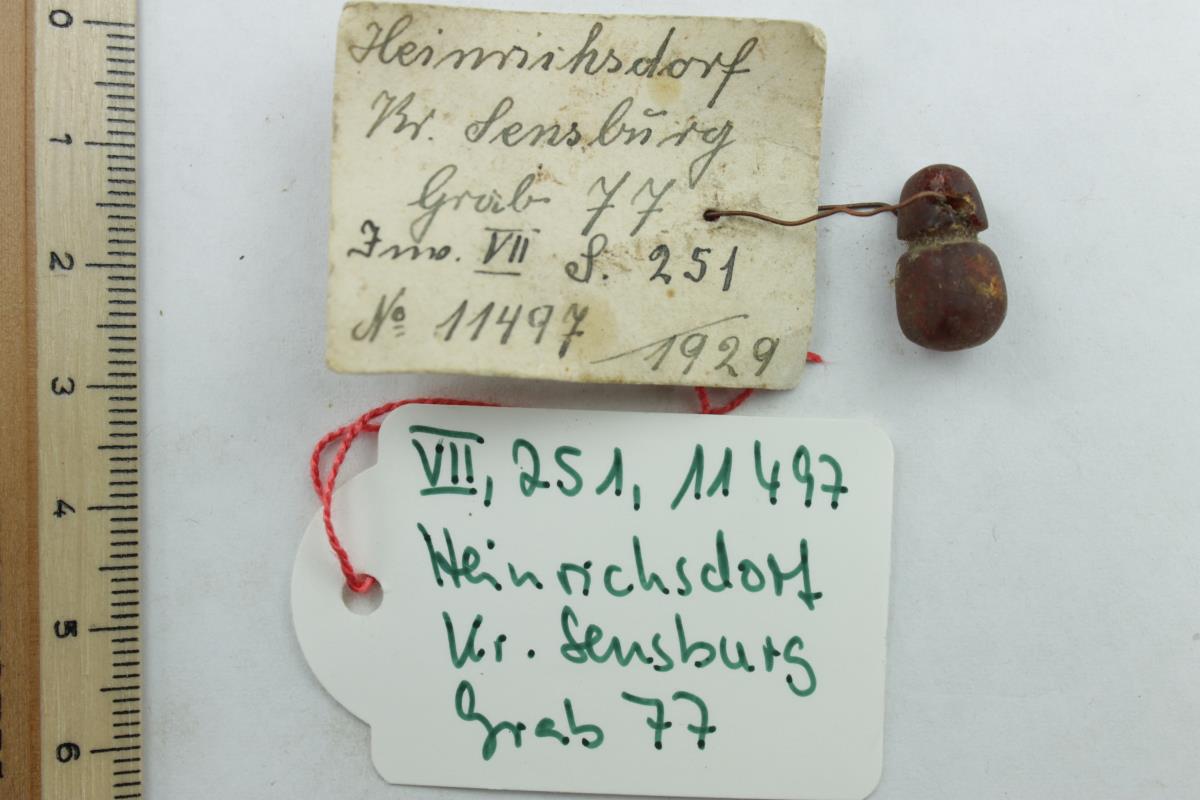 Heinrichsdorf
Kr. Sensburg
Grab 77
Inv. VII S. 251
No 11497
1929
VII, 251, 11497
Heinrichsdorf
Kr. Sensburg
Grab 77
0
1
2
3
4
5
6